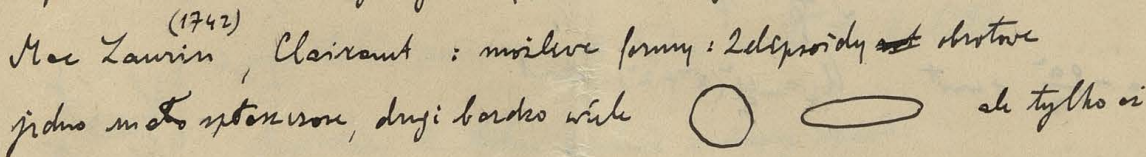 (1742)
Mac Laurin, Clairaut : możliwe formy : 2 elipsoidy obrotowe
jedno mało spłaszczone, drugi bardzo wiele ale tylko